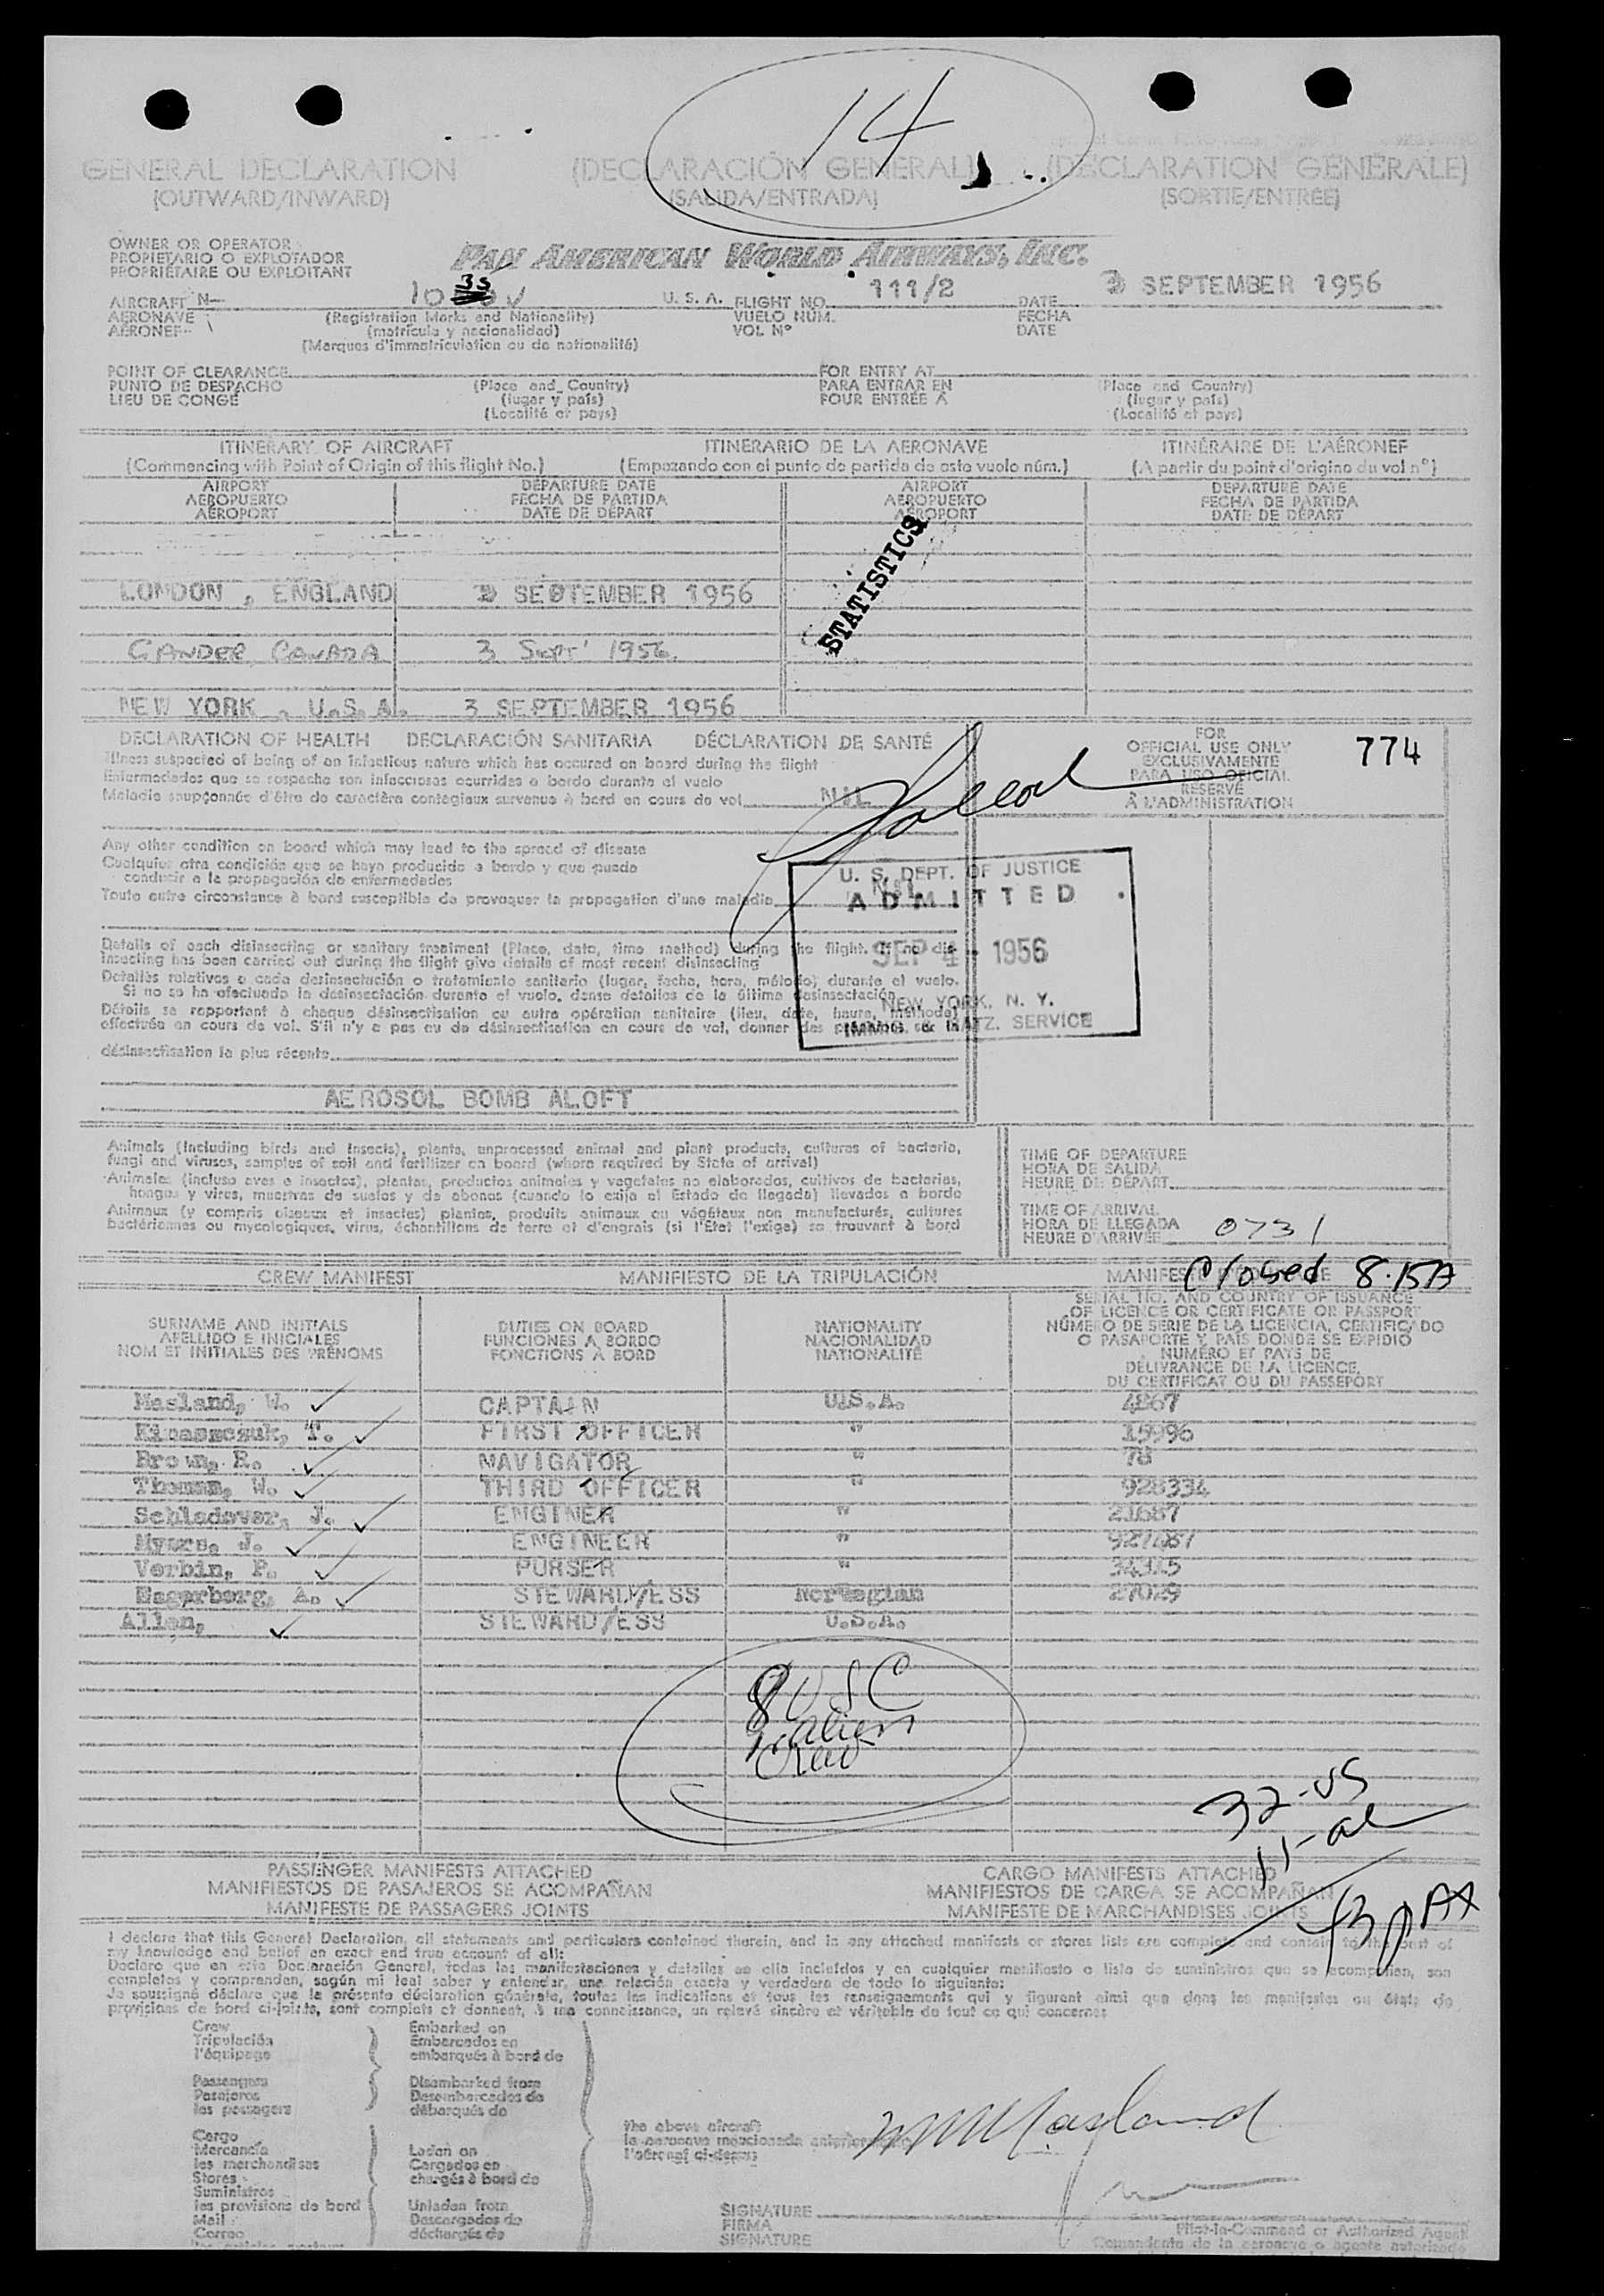 14
GENERAL DECLARATION (DECLARACIÓN GENERAL) (DÉCLARATION GÉNÉRALE)
(OUTWARD/INWARD) (SALIDA/ENTRADA) (SORTIE/ENTRÉE)
OWNER OR OPERATOR
PROPIETARIO O EXPLOTADOR
PROPRIÉTAIRE OU EXPLOITANT
PAN AMERICAN WORLD AIRWAYS, INC.
AIRCRAFT N- 10 35 V U. S. A. FLIGHT NO. 111/2 DATE 2 SEPTEMBER 1956
AERONAVE (Registration Marks and Nationality) VUELO NÚM. FECHA
AÉRONEF (matrícula y nacionalidad) VOL Nº DATE
(Marques d'immatriculation ou de nationalité)
POINT OF CLEARANCE FOR ENTRY AT
PUNTO DE DESPACHO (Place and Country) PARA ENTRAR EN (Place and Country)
LIEU DE CONGÉ (lugar y país) POUR ENTRÉE À (lugar y país)
(Localité et pays) (Localité et pays)
ITINERARY OF AIRCRAFT ITINERARIO DE LA AERONAVE ITINÉRAIRE DE L'AÉRONEF
(Commencing with Point of Origin of this flight No.) (Empezando con el punto de partida de este vuelo núm.) (A partir du point d'origine du vol nº)
AIRPORT DEPARTURE DATE AIRPORT DEPARTURE DATE
AEROPUERTO FECHA DE PARTIDA AEROPUERTO FECHA DE PARTIDA
AÉROPORT DATE DE DÉPART AÉROPORT DATE DE DÉPART
STATISTICS
LONDON , ENGLAND 2 SEPTEMBER 1956
GANDER, CANADA 3 SEPT' 1956
NEW YORK , U.S.A. 3 SEPTEMBER 1956
DECLARATION OF HEALTH DECLARACIÓN SANITARIA DÉCLARATION DE SANTÉ
Illness suspected of being of an infectious nature which has occured on board during the flight
Enfermedades que se sospecha son infecciosas ocurridas a bordo durante el vuelo
Maladie soupçonnée d'être de caractère contagieux survenue à bord en cours de vol NIL
FOR
OFFICIAL USE ONLY
EXCLUSIVAMENTE
PARA USO OFICIAL
RÉSERVÉ
À L'ADMINISTRATION
774
Any other condition on board which may lead to the spread of disease
Cualquier otra condición que se haya producido a bordo y que pueda
conducir a la propagación de enfermedades
Toute autre circonstance à bord susceptible de provoquer la propagation d'une maladie NIL
U. S. DEPT. OF JUSTICE
ADMITTED
SEP 4 - 1956
NEW YORK, N. Y.
IMMIG. & NATZ. SERVICE
Details of each disinsecting or sanitary treatment (Place, date, time method) during the flight. If no dis-
insecting has been carried out during the flight give details of most recent disinsecting
Detalles relativos a cada desinsectación o tratamiento sanitario (lugar, fecha, hora, método) durante el vuelo.
Si no se ha efectuado la desinsectación durante el vuelo, dense detalles de la última desinsectación
Détails se rapportant à chaque désinsectisation ou autre opération sanitaire (lieu, date, heure, méthode)
effectuée en cours de vol. S'il n'y a pas eu de désinsectisation en cours de vol, donner des précisions sur la
désinsectisation la plus récente
AEROSOL BOMB ALOFT
Animals (including birds and insects), plants, unprocessed animal and plant products, cultures of bacteria,
fungi and viruses, samples of soil and fertilizer on board (where required by State of arrival)
Animales (incluso aves e insectos), plantas, productos animales y vegetales no elaborados, cultivos de bacterias,
hongos y virus, muestras de suelos y de abonos (cuando lo exija el Estado de llegada) llevados a bordo
Animaux (y compris oiseaux et insectes) plantes, produits animaux ou végétaux non manufacturés, cultures
bactériennes ou mycologiques, virus, échantillons de terre et d'engrais (si l'État l'exige) se trouvant à bord
TIME OF DEPARTURE
HORA DE SALIDA
HEURE DE DÉPART
TIME OF ARRIVAL
HORA DE LLEGADA
HEURE D'ARRIVÉE 0731
Closed 8.15A
CREW MANIFEST MANIFIESTO DE LA TRIPULACIÓN
SURNAME AND INITIALS
APELLIDO E INICIALES
NOM ET INITIALES DES PRÉNOMS
DUTIES ON BOARD
FUNCIONES A BORDO
FONCTIONS À BORD
NATIONALITY
NACIONALIDAD
NATIONALITÉ
SERIAL NO. AND COUNTRY OF ISSUANCE
OF LICENCE OR CERTIFICATE OR PASSPORT
NÚMERO DE SERIE DE LA LICENCIA, CERTIFICADO
O PASAPORTE Y PAÍS DONDE SE EXPIDIÓ
NUMÉRO ET PAYS DE
DÉLIVRANCE DE LA LICENCE,
DU CERTIFICAT OU DU PASSEPORT
Masland, W. CAPTAIN U.S.A. 4867
T. FIRST OFFICER " 15996
Brown, R. NAVIGATOR " 78
Thomas, W. THIRD OFFICER " 928334
Schladover, J. ENGINER " 21687
Myers, J. ENGINEER " 927487
Verbin, P. PURSER " 34315
Hagerberg, A. STEWARD/ESS Norwegian 27029
Allen, STEWARD/ESS U.S.A.
8 USC
1 alien
Crew
32-US
11-al
43 PAX
PASSENGER MANIFESTS ATTACHED CARGO MANIFESTS ATTACHED
MANIFIESTOS DE PASAJEROS SE ACOMPAÑAN MANIFIESTOS DE CARGA SE ACOMPAÑAN
MANIFESTE DE PASSAGERS JOINTS MANIFESTE DE MARCHANDISES JOINTS
I declare that this General Declaration, all statements and particulars contained therein, and in any attached manifests or stores lists are complete and contain to the best of
my knowledge and belief an exact and true account of all:
Declaro que en esta Declaración General, todas las manifestaciones y detalles en ella incluídos y en cualquier manifiesto o lista de suministros que se acompañan, son
completos y comprenden, según mi leal saber y entender, una relación exacta y verdadera de todo lo siguiente:
Je soussigné déclare que la présente déclaration générale, toutes les indications et tous les renseignements qui y figurent ainsi que dans les manifestes ou états de
provisions de bord ci-joints, sont complets et donnent, à ma connaissance, un relevé sincère et véritable de tout ce qui concerne:
Crew
Tripulación
l'équipage
Passengers
Pasajeros
les passagers
Cargo
Mercancía
les marchandises
Stores
Suministros
les provisions de bord
Mail
Correo
Embarked on
Embarcados en
embarqués à bord de
Disembarked from
Desembarcados de
débarqués de
Laden on
Cargados en
chargés à bord de
Unladen from
Descargados de
déchargés de
the above aircraft
la aeronave mencionada anteriormente
l'aéronef ci-dessus
WMMasland
SIGNATURE
FIRMA
SIGNATURE
Pilot-in-Command or Authorized Agent
Comandante de la aeronave o agente autorizado